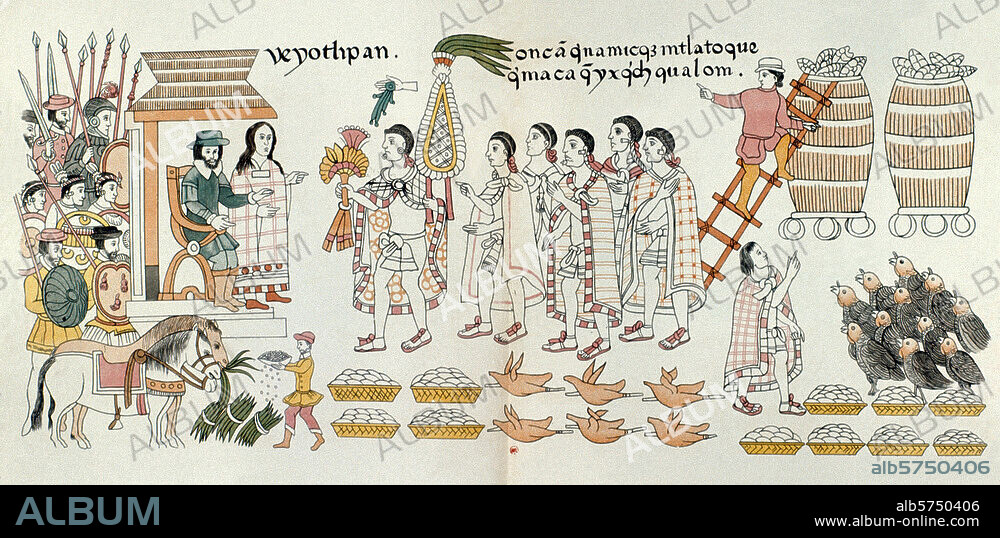 veyothpan.
oncā q̄namicq3 mtlatoque
q̄maca q̄yxq̄ch qualom.
ALBUM
alb5750406
ALBUM
alb5750406
www.album-online.com